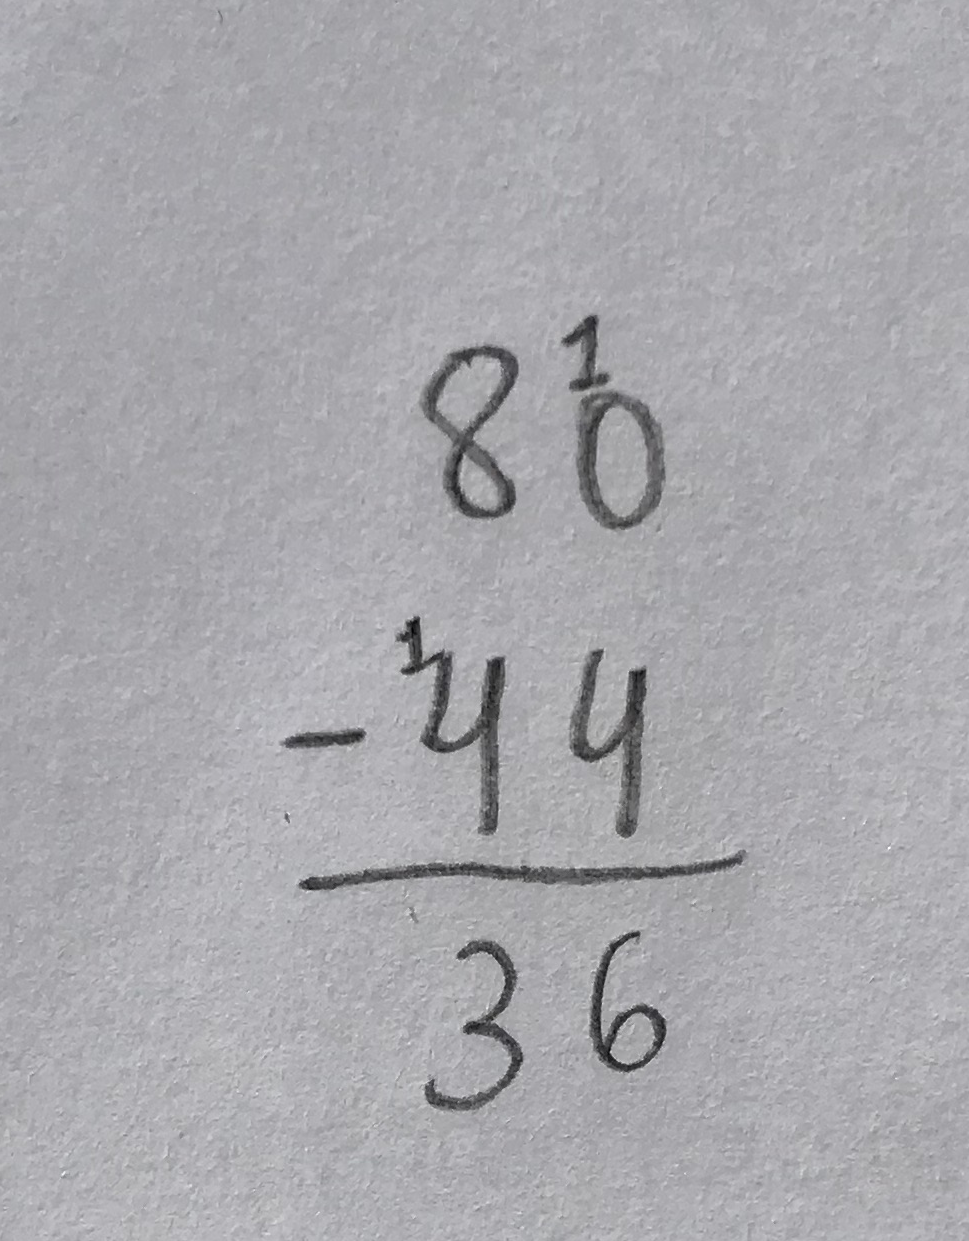 8¹0
- ¹44
36